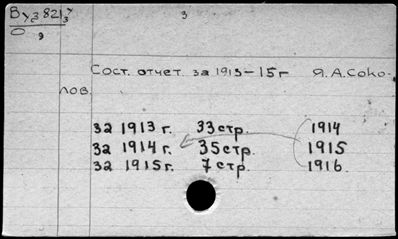 Ву3 821/3
3
0 9
Сост. отчет. за 1913-15 г Я. А. Соко-
лов.
за 1913 г. 33 стр. 1914
за 1914 г. 35 стр. 1915
за 1915 г. 7 стр. 1916